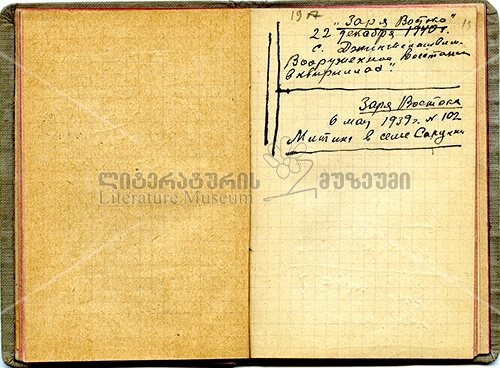 19
"Заря Востока"
22 декабря 1940 г.
с. Джинчвелашвили.
Вооруженное восстание
в Квирилах".
Заря Востока
6 мая 1939 г. № 102
Митинг в селе
ლიტერატურის მუზეუმი
Literature Museum